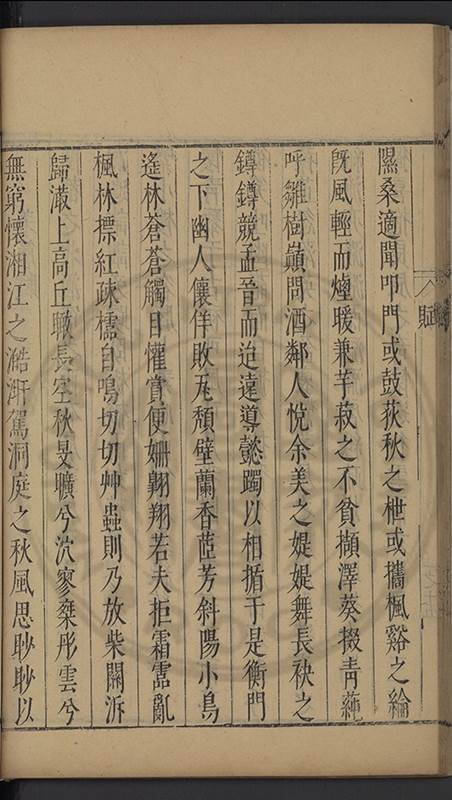 賦
隰桑適聞叩門或鼓荻秋之枻或攜楓谿之綸
旣風輕而煙暖兼芋菽之不貧擷澤葵掇靑蒓
呼雛樹巔問酒鄰人悅余美之媞媞舞長袂之
鐏鐏競孟晉而迨遠導懿躅以相揗于是衡門
之下幽人儴佯敗瓦頹壁蘭香茝芳斜陽小鳥
遙林蒼蒼觸目懽賞便姍翺翔若夫拒霜霑亂
楓林摽紅疎櫺自鳴切切艸蟲則乃放柴關泝
歸潊上高丘瞰長空秋旻曠兮泬寥桀彤雲兮
無窮懷湘江之澔汗駕洞庭之秋風思眇眇以